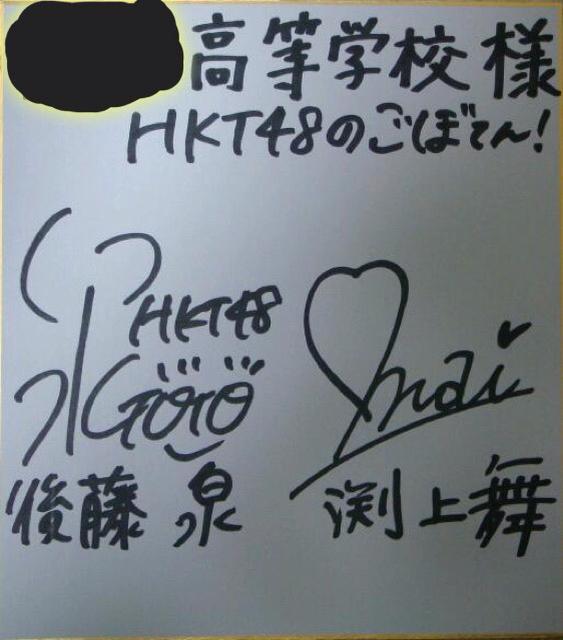 高等学校様
HKT48のごぼてん!
HKT48
Goto
mai
後藤 泉
渕上舞